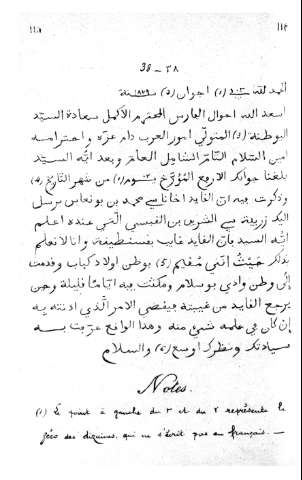 ١١٥ 115
38 - ٣٨
الحمد لله (١) اجوان (٥) سنة ١٨٣٩
اسعد الله احوال الفارس المحترم الاكمل سعادة السيّد
المتولّي امور العرب دام عزّه واحترامه
امين السلام التامّ الشامل العامّ وبعد ايّه السيّد
بلغنا جوابك الارفع المؤرّخ من شهر التاريخ
وذكرت فيه ان القايد محمد بن بونعاس يرسل
اليك الشريف بن الفبسي الّتي عنده اعلم
ايّه السيد بأن القايد غايب بفسنطينة وانا لا نعلم
بذلك حيث انّي مقيم (٥) بوطن اولاد كباب وقدمت
الى وطن وادي بوسلام ومكثت فيه ايّاما قليلة وحين
يرجع القايد من غيبته يقضي الامر الّذي اذنته به
إن كان في علمه شيئ منه وهذا الواقع عرّفت به
سيادتك ونظرك اوسع (٥) والسلام
Notes.
(١) Le point à gauche du ٢ et du ٢ représente le
zéro des dizaines, qui ne s'écrit pas en français. —